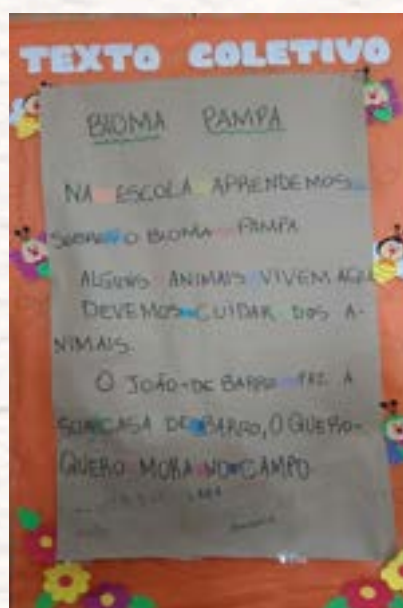 TEXTO COLETIVO
BIOMA PAMPA
NA ESCOLA APRENDEMOS
SOBRE O BIOMA PAMPA
ALGUNS ANIMAIS VIVEM AQUI
DEVEMOS CUIDAR DOS A-
NIMAIS.
O JOÃO-DE BARRO FAZ A
SUA CASA DE BARRO, O QUERO-
QUERO MORA NO CAMPO